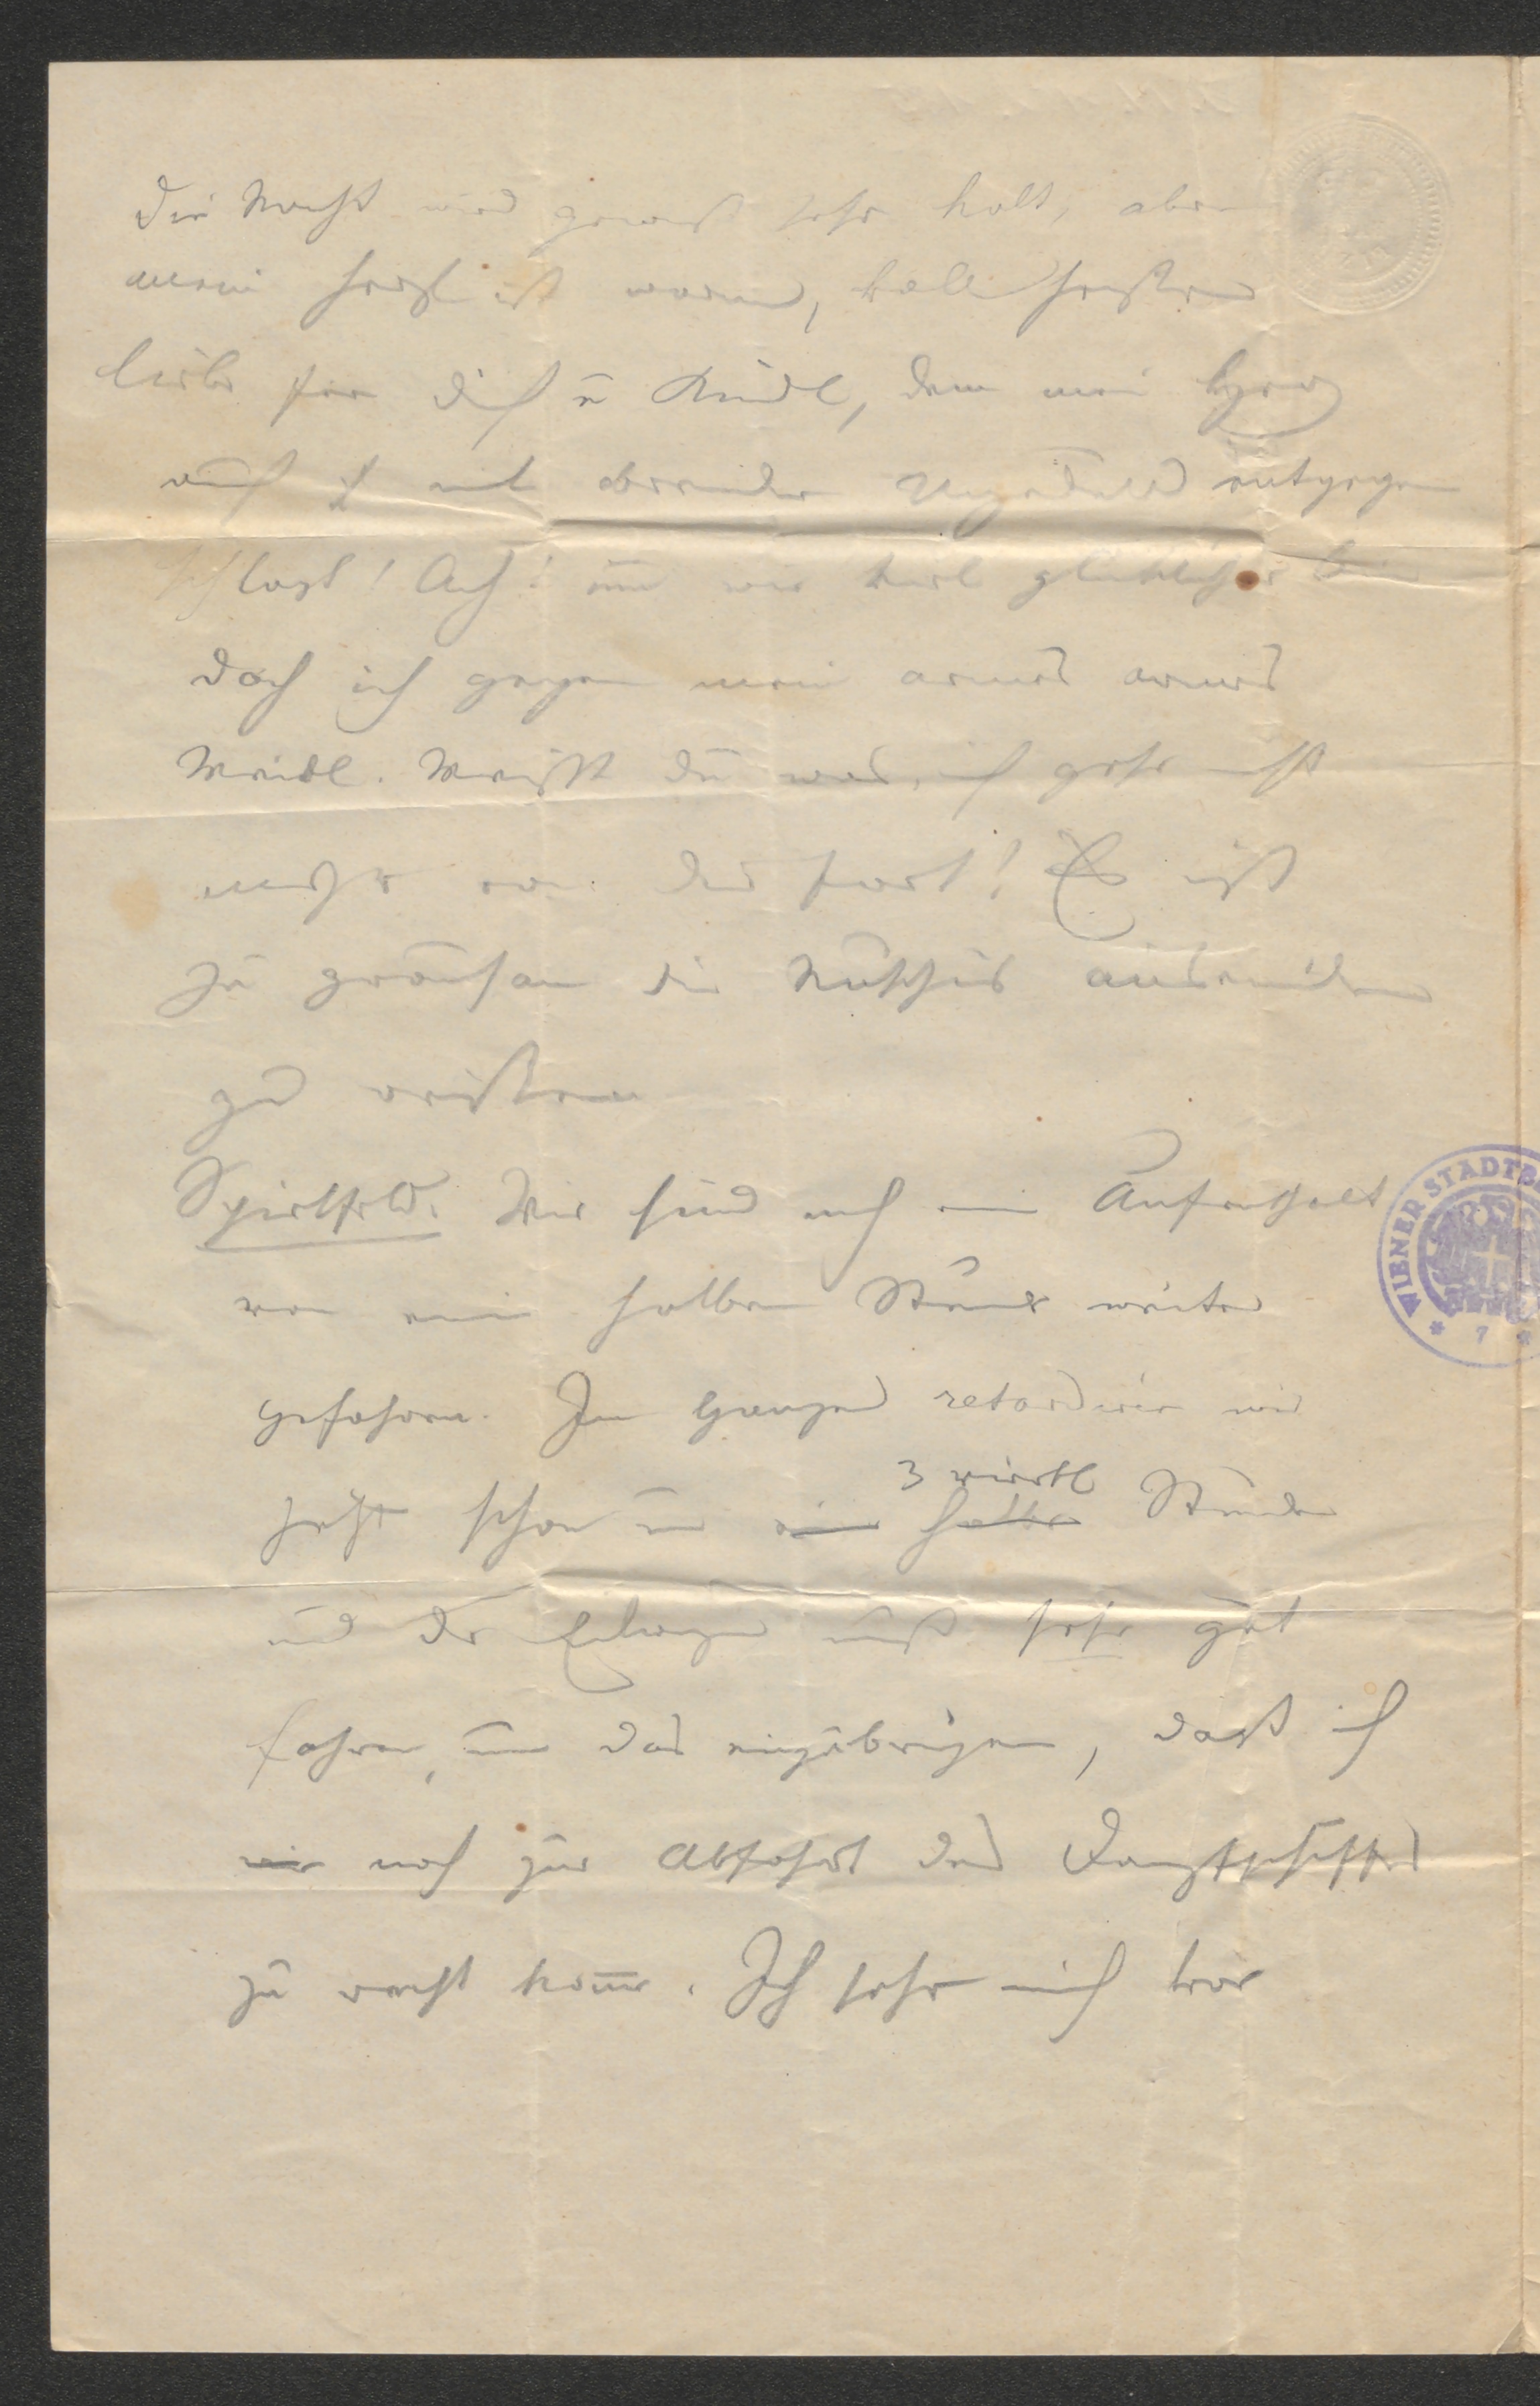 Die Nacht wird gewiß sehr kalt, aber
mein Herzl ist warm, voll heißer
Liebe für Dich u Kindl, dem mein Herz
auch mit Ungeduld entgegen
schlagt! Ach! um wie viel glücklicher bin
doch ich gegen mein armes armes
Weibl. Weißt Du was, ich gehe nicht
mehr von Dir fort! Es ist
zu grausam die auseinander
zu reißen
Spielfeld. Wir sind nach ein Aufenthalt
von ein halben Stunde weiter
gefahren. Im Ganzen retardiren wir
3 viertl
jetzt schon um eine halbe Stunden
und der Eilzug muß sehr gut
fahren, um das einzubringen, daß ich
wir noch zur Abfahrt des Dampfschiffes
zu recht komme. Ich sehe mich
WIENER STADTB
* 7 *